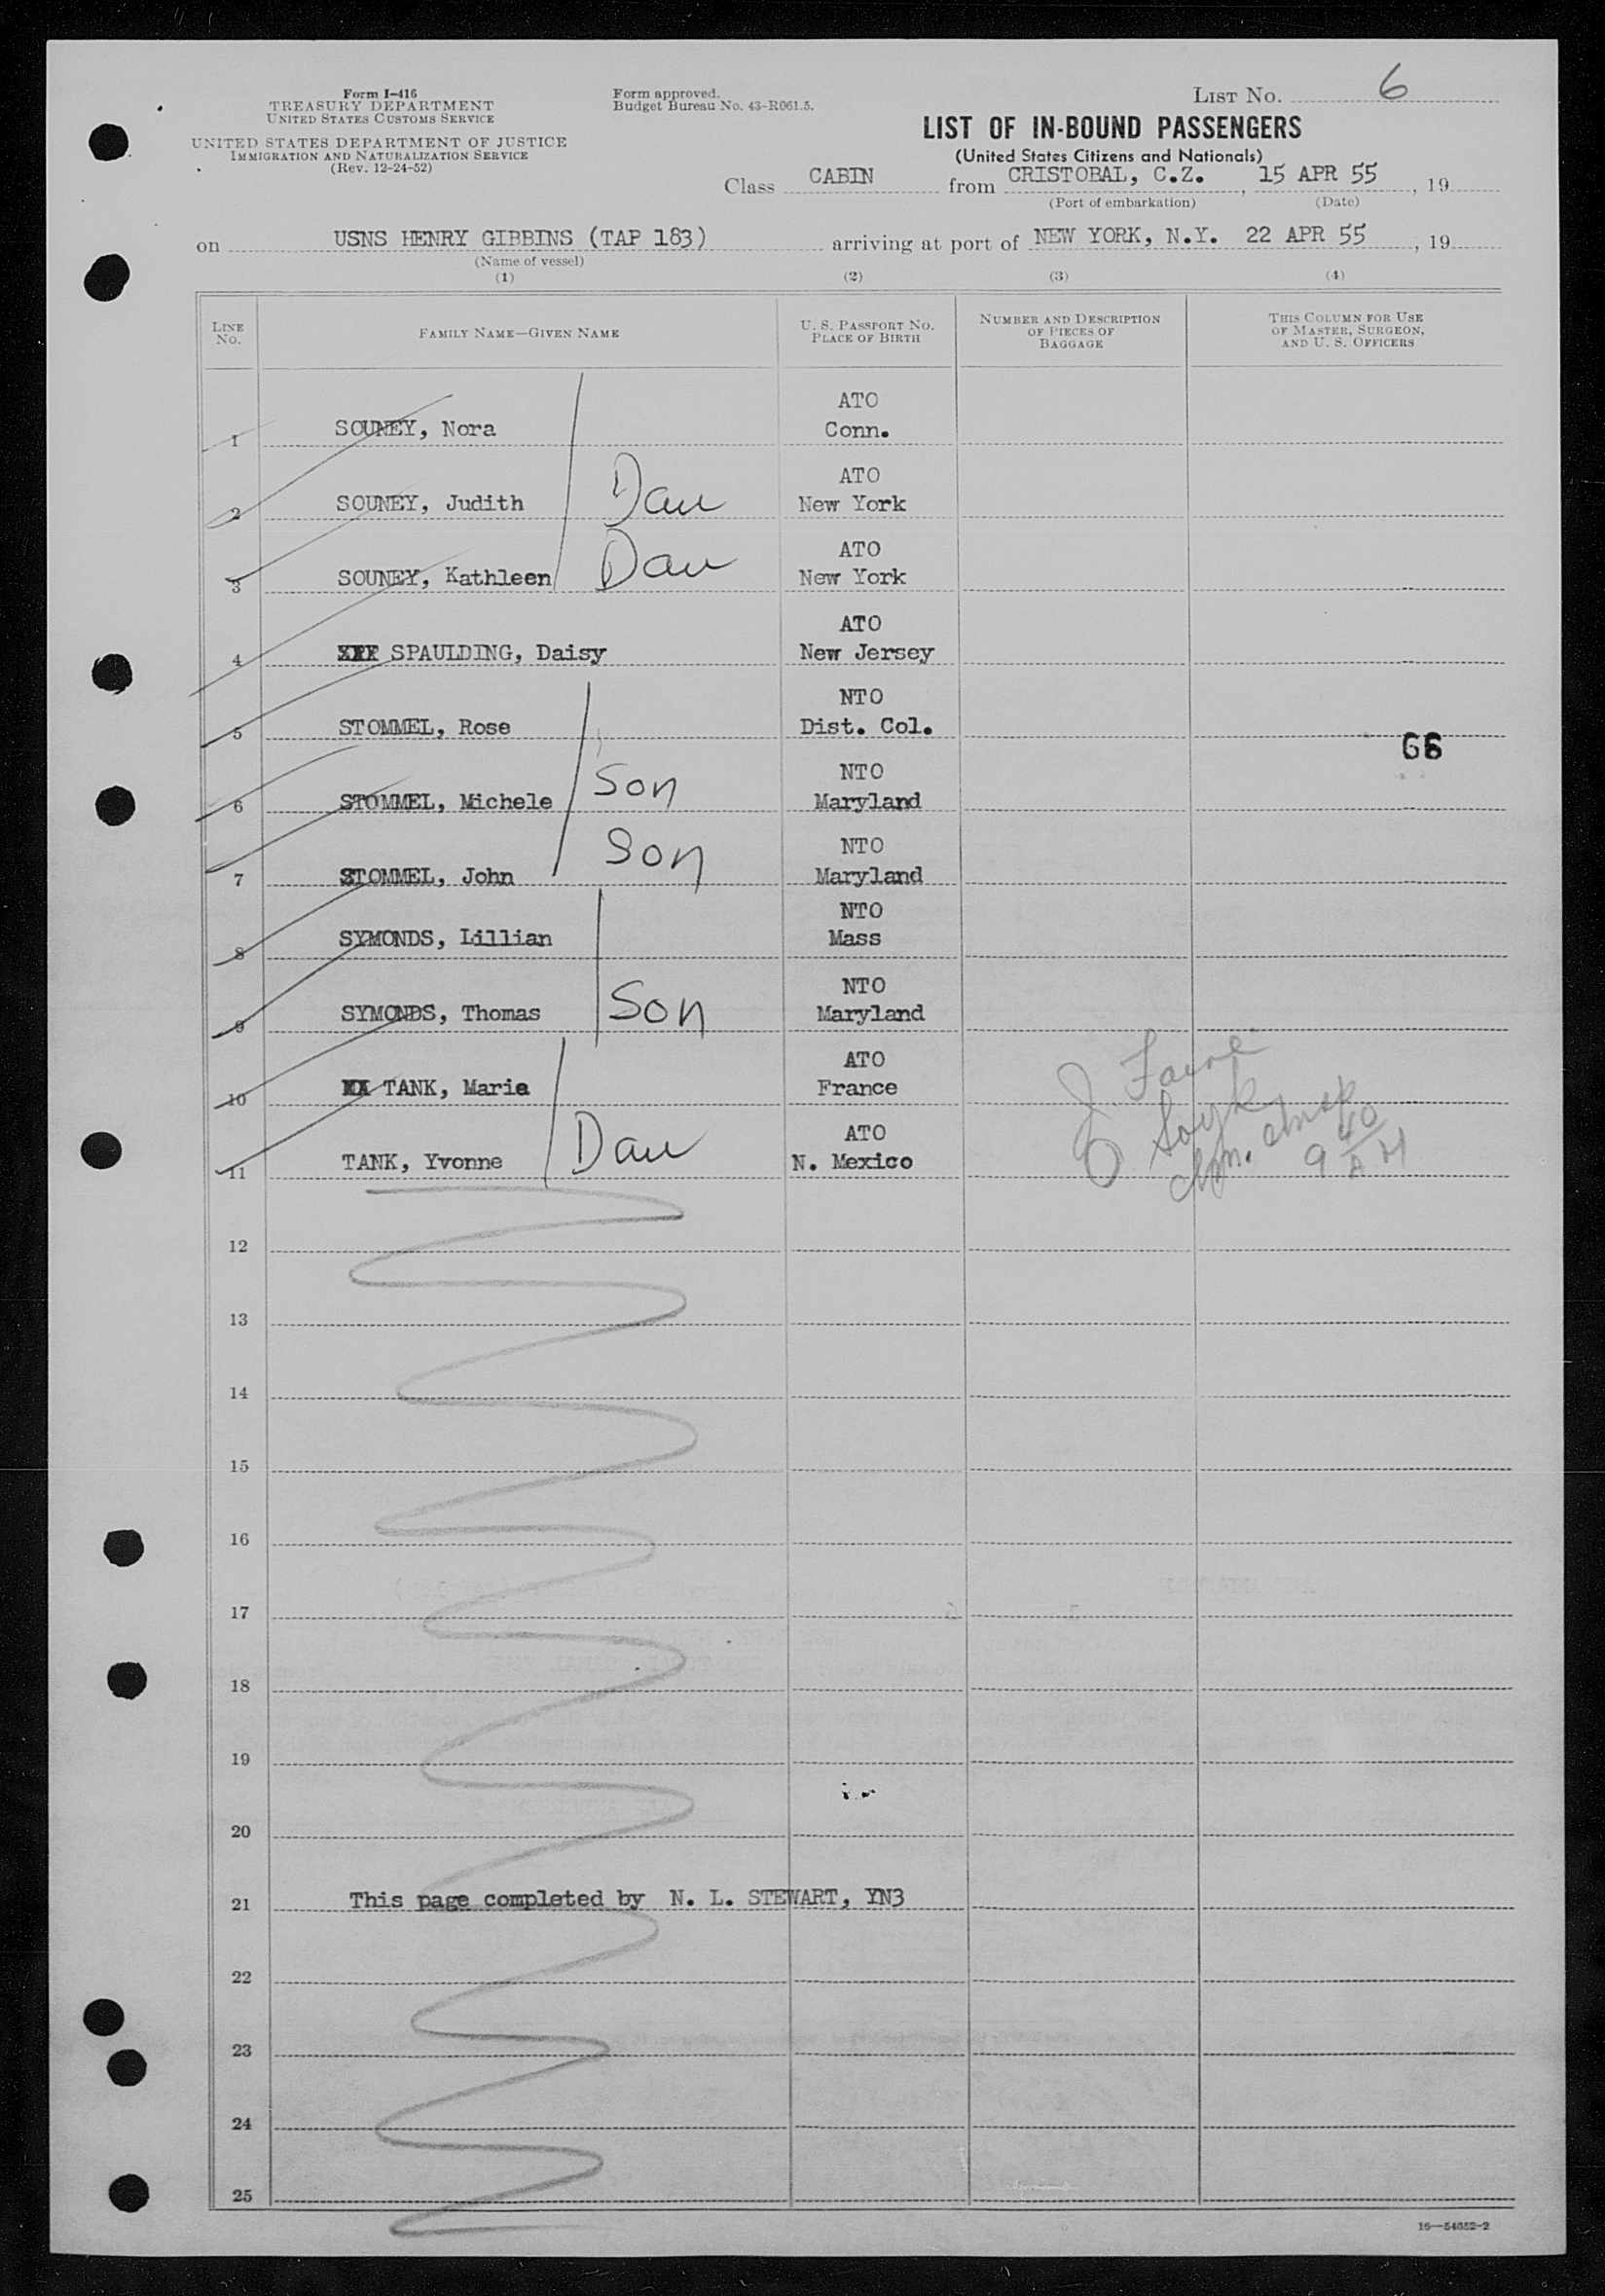 Form I-416
TREASURY DEPARTMENT
UNITED STATES CUSTOMS SERVICE
UNITED STATES DEPARTMENT OF JUSTICE
IMMIGRATION AND NATURALIZATION SERVICE
(Rev. 12-24-52)
Form approved.
Budget Bureau No. 43-R061.5.
LIST No. 6
LIST OF IN-BOUND PASSENGERS
(United States Citizens and Nationals)
Class CABIN from CRISTOBAL, C.Z. , 15 APR 55 , 19
(Port of embarkation) (Date)
on USNS HENRY GIBBINS (TAP 183) arriving at port of NEW YORK, N.Y. 22 APR 55 , 19
(Name of vessel)
(1) (2) (3) (4)
LINE No. FAMILY NAME—GIVEN NAME U. S. PASSPORT No. PLACE OF BIRTH NUMBER AND DESCRIPTION OF PIECES OF BAGGAGE THIS COLUMN FOR USE OF MASTER, SURGEON, AND U. S. OFFICERS
ATO
1 SOUNEY, Nora Conn.
ATO
2 SOUNEY, Judith Dau New York
ATO
3 SOUNEY, Kathleen Dau New York
ATO
4 SPAULDING, Daisy New Jersey
NTO
5 STOMMEL, Rose Dist. Col.
66
NTO
6 STOMMEL, Michele Son Maryland
NTO
7 STOMMEL, John Son Maryland
NTO
8 SYMONDS, Lillian Mass
NTO
9 SYMONDS, Thomas Son Maryland
ATO
10 TANK, Marie France
ATO
11 TANK, Yvonne Dau N. Mexico
9 40 AM
12
13
14
15
16
17
18
19
20
21 This page completed by N. L. STEWART, YN3
22
23
24
25
16—54652-2